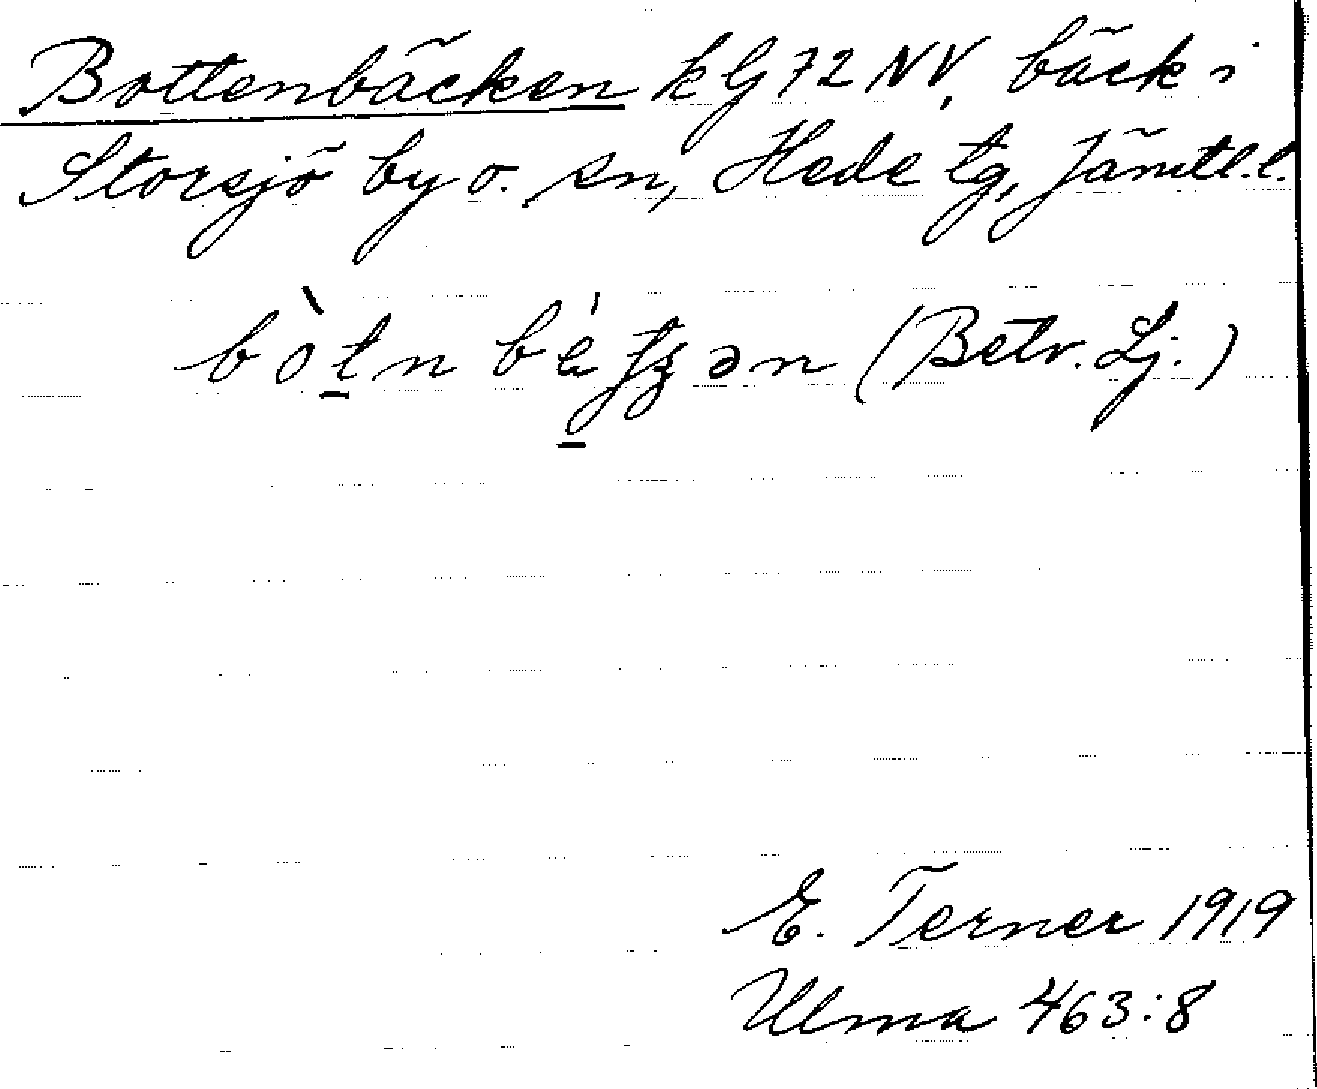 Bottenbäcken kG72NV, bäck i
Storsjö by o. sn, Hede tg, Jämtl.l.
(Betr. Lj.)
E. Terner 1919
Ulma 463:8